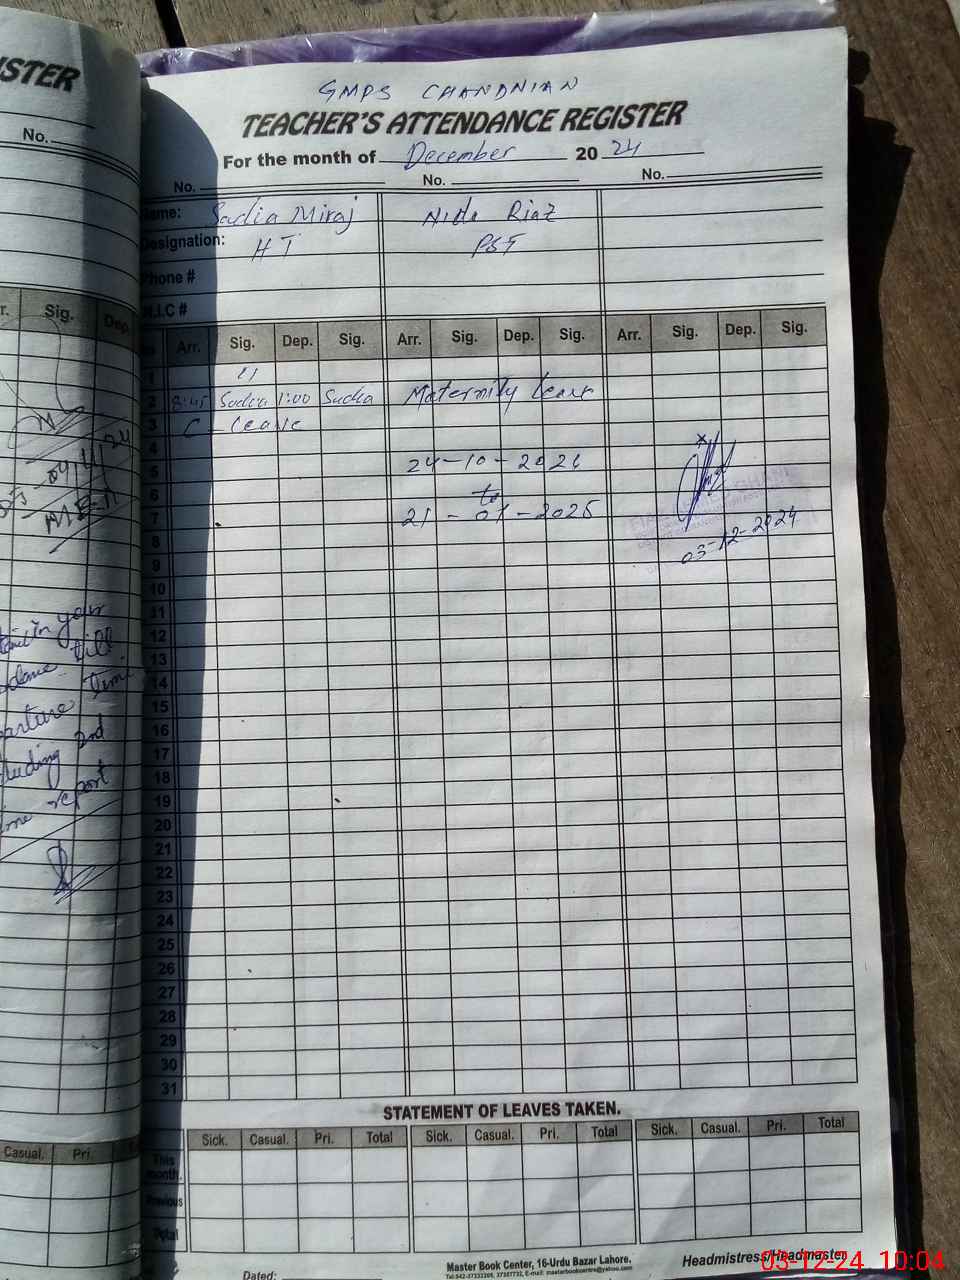 ISTER
No.
r. Sig. Dep.
in your
till
time
2nd
report
Casual. Pri.
GMPS CHANDNIAN
TEACHER'S ATTENDANCE REGISTER
For the month of December 20 24
No. No. No.
Name: Sadia Miraj Nida Riaz
Designation: HT PST
Phone #
N.I.C #
Arr. Sig. Dep. Sig. Arr. Sig. Dep. Sig. Arr. Sig. Dep. Sig.
1 11
2 8:45 Sadia 1:00 Sadia Maternity leave
3 C - leave
4
5 24-10-2024
6 to
7 21-01-2025
03-12-2024
8
9
10
11
12
13
14
15
16
17
18
19
20
21
22
23
24
25
26
27
28
29
30
31
STATEMENT OF LEAVES TAKEN.
Sick. Casual. Pri. Total Sick. Casual. Pri. Total Sick. Casual. Pri. Total
This month.
Previous
Total
Dated:
Master Book Center, 16-Urdu Bazar Lahore.
Headmistress/Headmaster
03-12-24 10:04